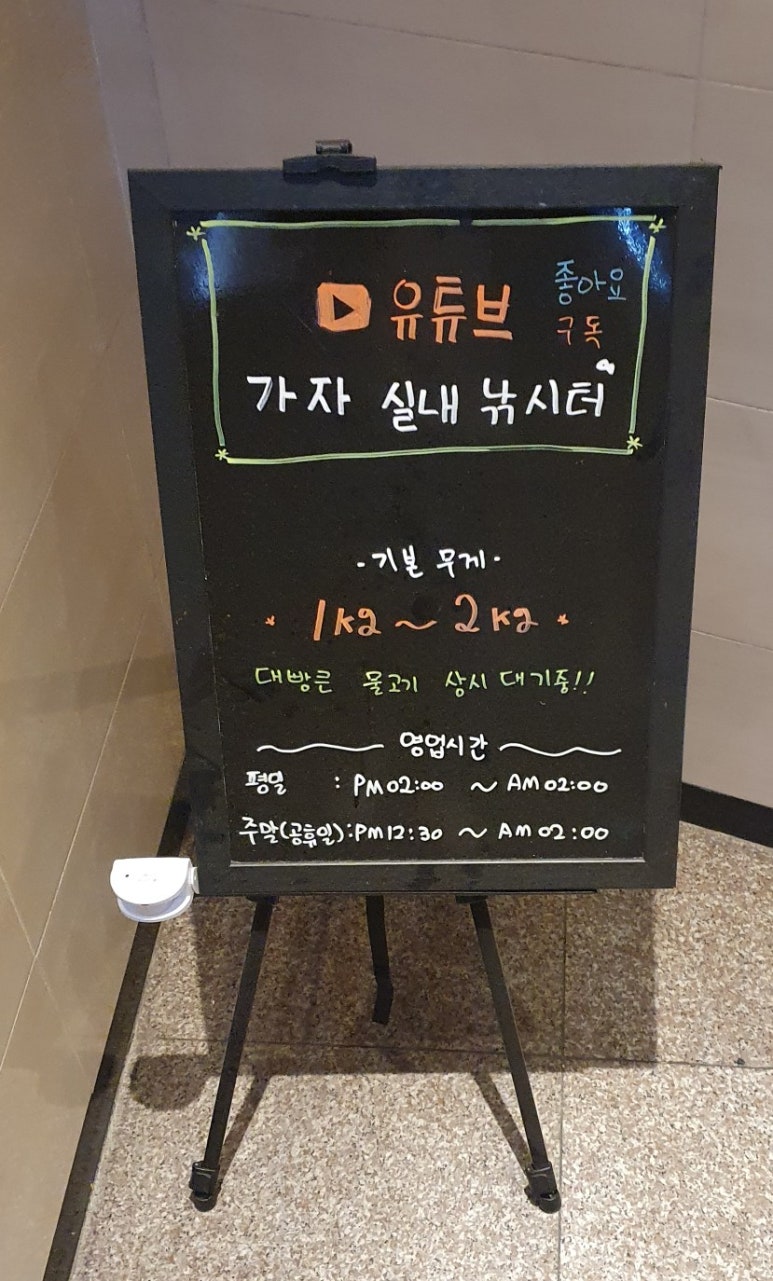 유튜브 좋아요
구독
가자 실내 낚시터
-기본 무게-
1kg ~ 2kg
대빵큰 물고기 상시 대기중!!
영업시간
평일 : PM 02:00 ~ AM 02:00
주말(공휴일):PM 12:30 ~ AM 02:00